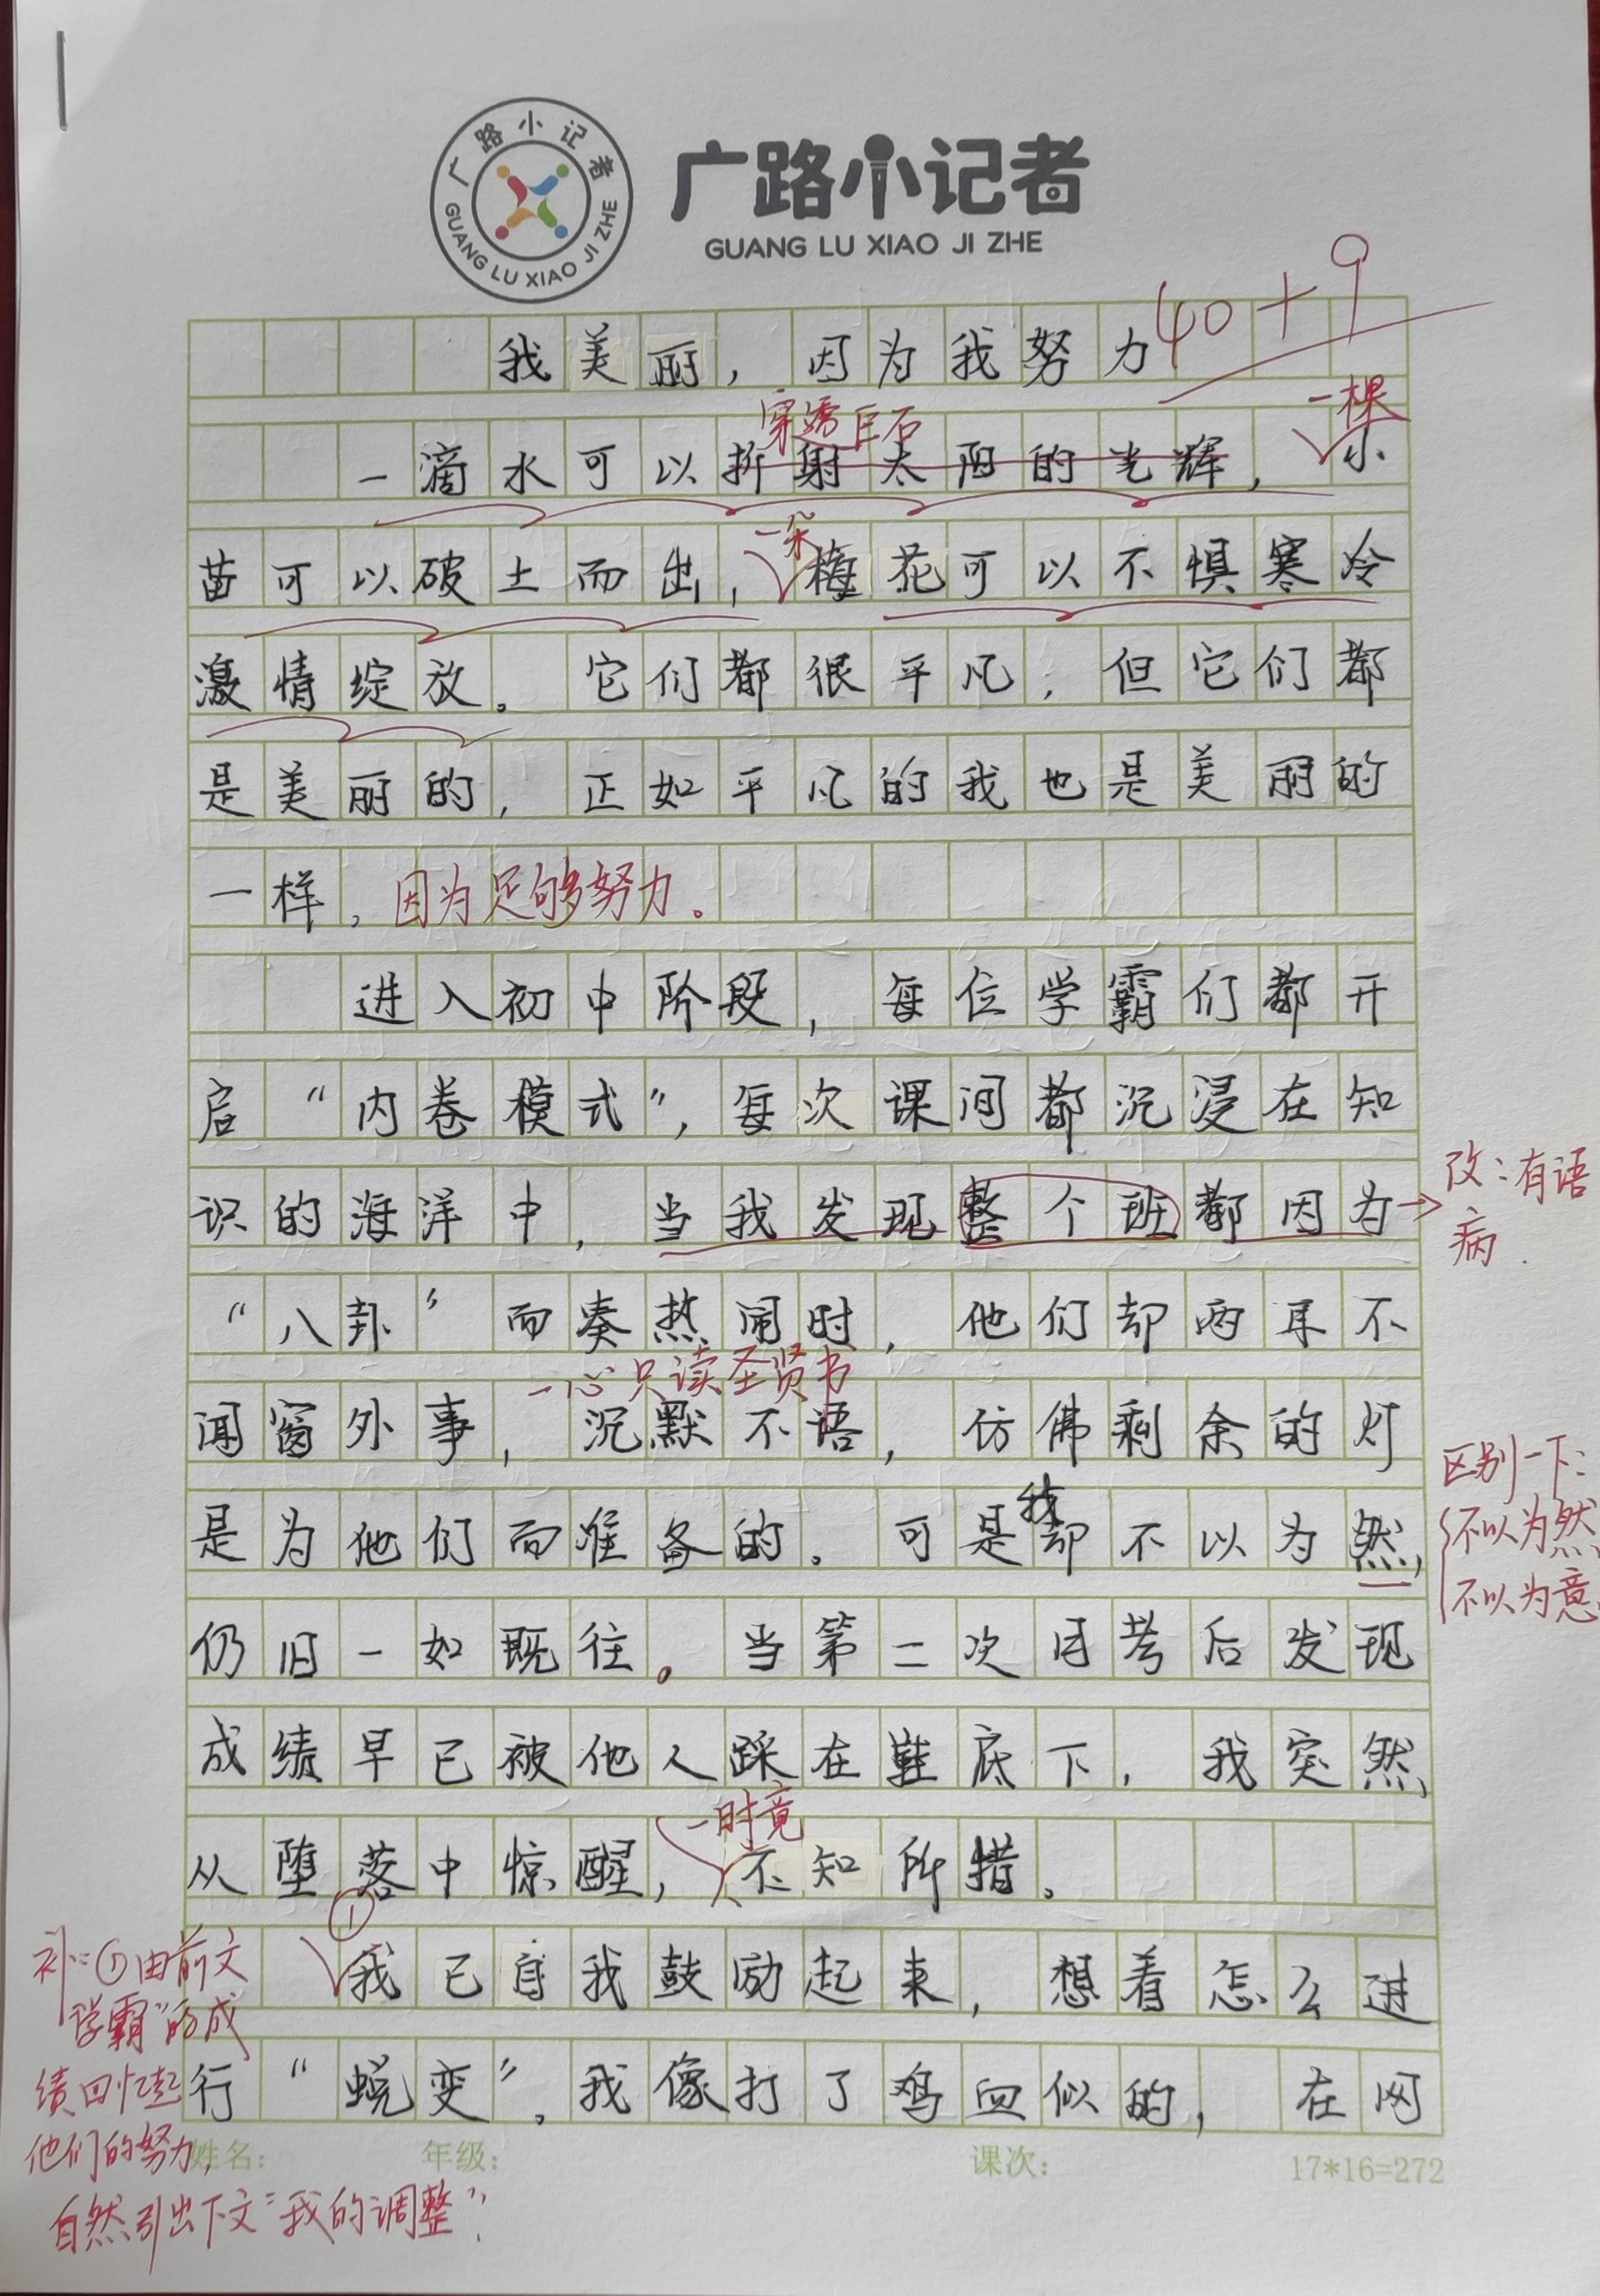 广路小记者
GUANG LU XIAO JI ZHE
广路小记者
GUANG LU XIAO JI ZHE
40+9
我美丽，因为我努力
穿透巨石
一棵
一滴水可以折射太阳的光辉，小
一朵
苗可以破土而出，梅花可以不惧寒冷
激情绽放。它们都很平凡，但它们都
是美丽的，正如平凡的我也是美丽的
一样，因为足够努力。
进入初中阶段，每位学霸们都开
启“内卷模式”，每次课间都沉浸在知
识的海洋中，当我发现整个班都因为
改：有语
病.
“八卦”而凑热闹时，他们却两耳不
一心只读圣贤书
闻窗外事，沉默不语，仿佛剩余的灯
区别一下：
不以为然
不以为意
我
是为他们而准备的。可是却不以为然，
仍旧一如既往。当第二次月考后发现
成绩早已被他人踩在鞋底下，我突然
一时竟
从堕落中惊醒，不知所措。
①
我已自我鼓励起来，想着怎么进
行“蜕变”。我像打了鸡血似的，在网
补：①由前文
学霸”的成
绩回忆起
他们的努力，
自然引出下文“我的调整”.
姓名： 年级： 课次： 17*16=272